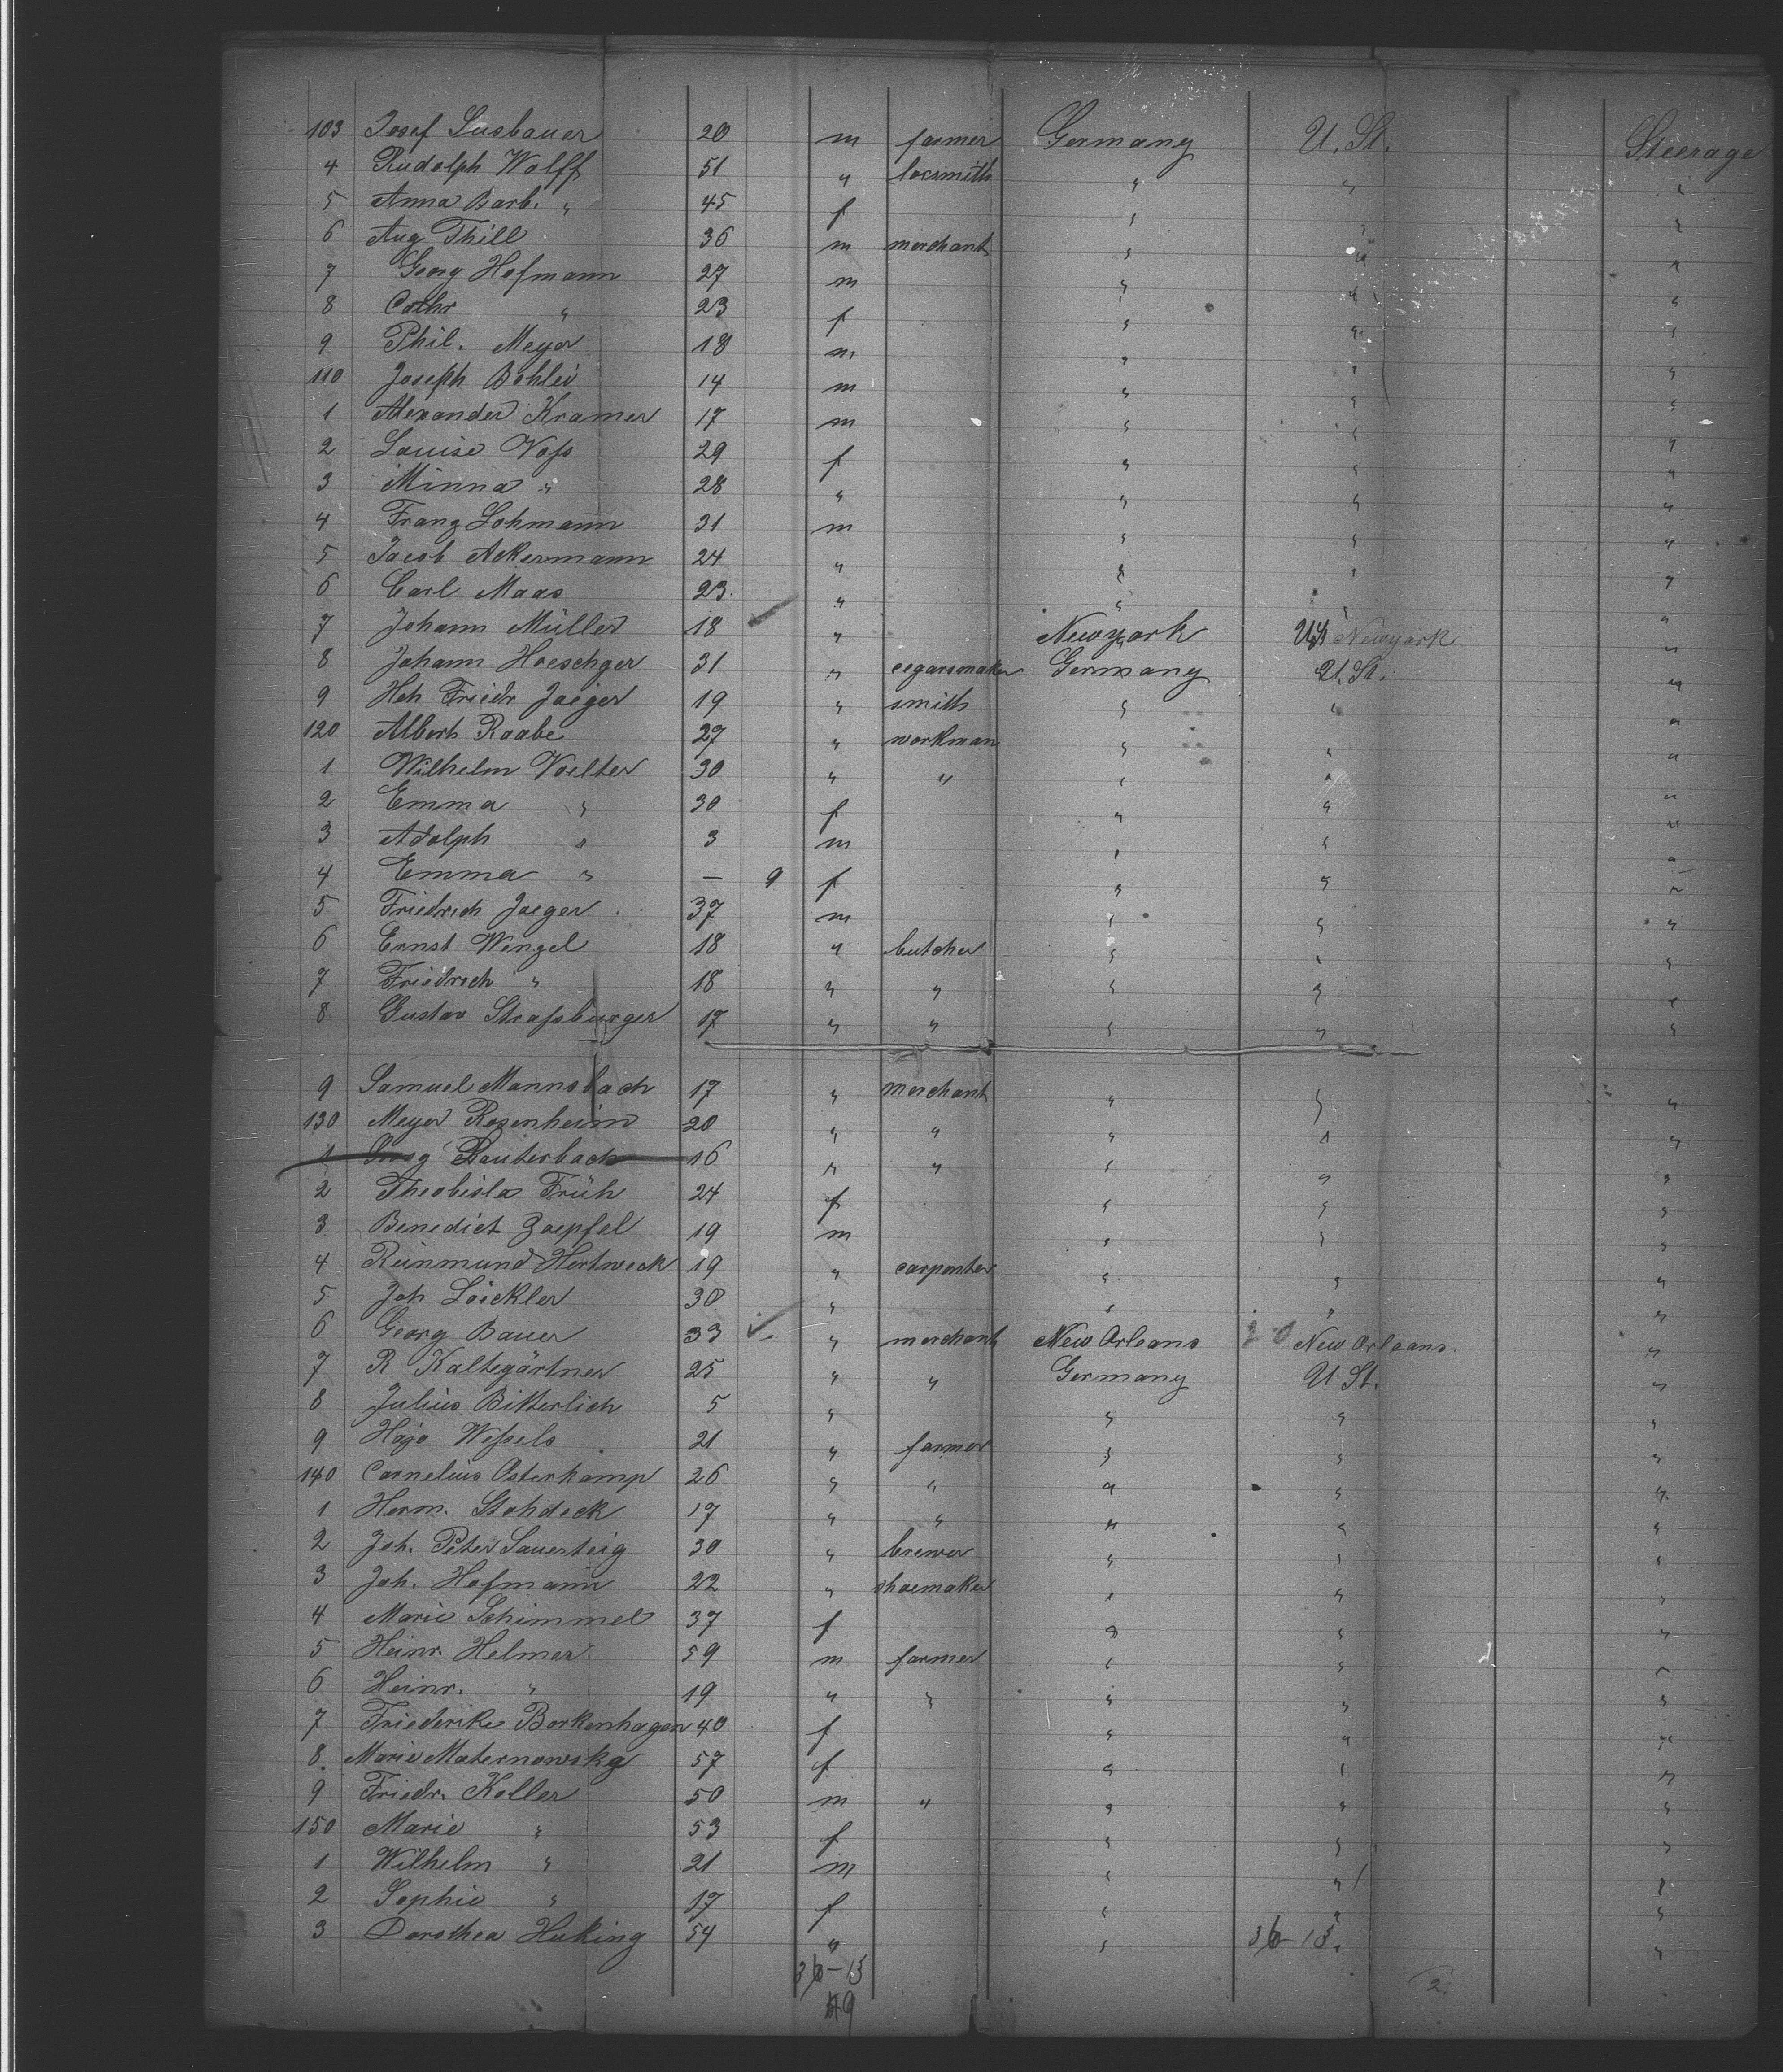 103 Josef Susbauer 20 m farmer Germany U. St. Steerage
4 Rudolph Wolff 51 " locsmith " " "
5 Anna Barb. " 45 f " " "
6 Aug Thill 36 m merchant " " "
7 Georg Hofmann 27 m " " "
8 Cathr " 23 f " " "
9 Phil. Meyer 18 m " " "
110 Joseph Bohlei 14 m " " "
1 Alexander Kramer 17 m " " "
2 Louise Voss 29 f " " "
3 Minna " 28 " " " "
4 Franz Lohmann 31 m " " "
5 Jacob Ackermann 24 " " " "
6 Carl Maas 23 " " " "
7 Johann Müller 18 " Newyork Newyork "
8 Johann Hoeschger 31 " cegarsmaker Germany U. St. "
9 Hch Friedr Jaeger 19 " smith " " "
120 Albert Raabe 27 " workman " " "
1 Wilhelm Voelter 30 " " " " "
2 Emma " 30 f " " "
3 Adolph " 3 m " " "
4 Emma " — 9 f " " "
5 Friedrich Jaeger 37 m " " "
6 Ernst Wenzel 18 " butcher " " "
7 Friedrich " 18 " " " " "
8 Gustav Strassburger 17 " " " " "
9 Samuel Mannsbach 17 " merchant " " "
130 Meyer Rosenheim 20 " " " " "
1 Rauterbach 16 " " " " "
2 Theobisla Früh 24 f " " "
3 Benedict Zoepfel 19 m " " "
4 Reinmund Hertweck 19 " carpenter " " "
5 Joh Loickler 30 " " " "
6 Georg Bauer 33 " merchant New Orleans New Orleans. "
7 R Kaltegärtner 25 " " Germany U St. "
8 Julius Bitterlich 5 " " " "
9 Hajo Wessels 21 " farmer " " "
140 Cornelius Osterkamp 26 " " " " "
1 Herm. Stohdeck 17 " " " " "
2 Joh. Peter Sauerteig 30 " brewer " " "
3 Joh. Hofmann 22 " shoemaker " " "
4 Marie Schimmel 37 f " " "
5 Heinr. Helmer 59 m farmer " " "
6 Heinr. " 19 " " " " "
7 Friederike Borkenhagen 40 f " " "
8 Marie Maternowsky 57 f " " "
9 Friedr. Koller 50 m " " " "
150 Marie " 53 f " " "
1 Wilhelm " 21 m " " "
2 Sophie " 17 f " " "
3 Dorothea Huking 54 " " 36-13. "
36-13 2
49